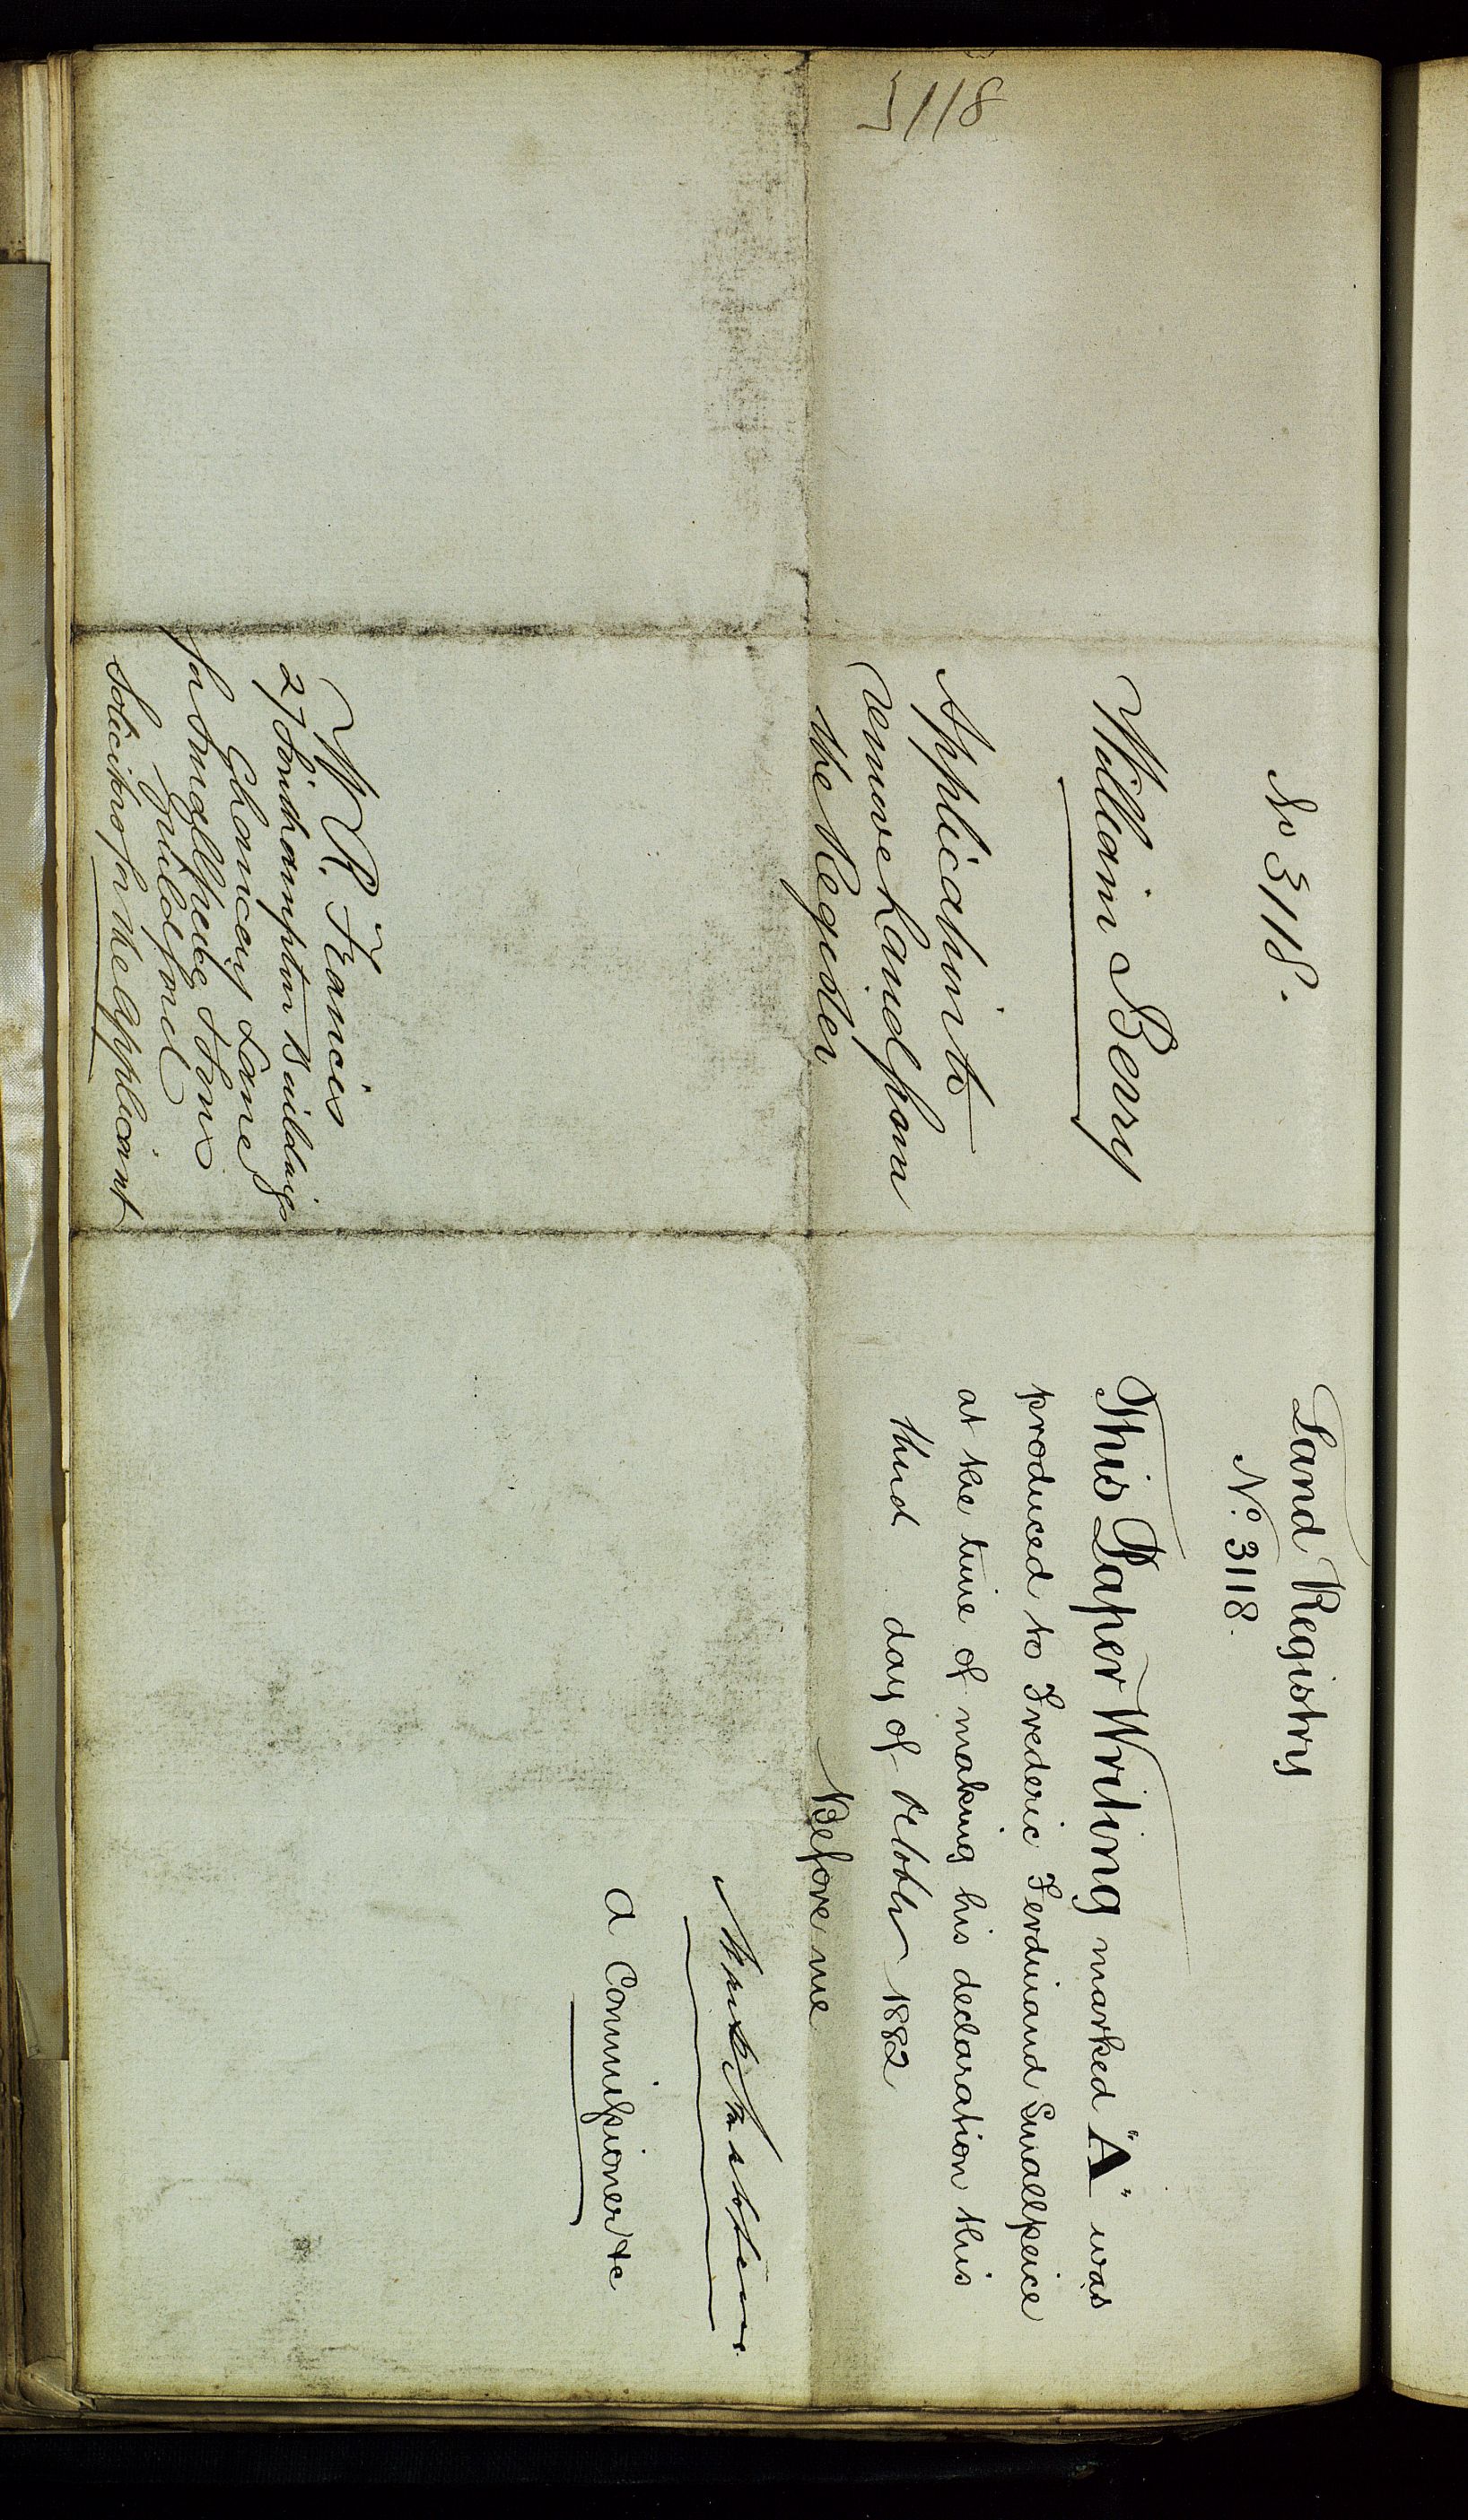 3118
No 3118.
William Berry
Application to
remove Land from
the Register
W R. Francis
27 Southampton Buildings
Chancery Lane
for Smallpeice & Sons
Guildford
Solicitors for the Applicant
Land Registry
No. 3118.
This Paper Writing marked "A" was
produced to Frederic Ferdinand Smallpeice
at the time of making his declaration this
third day of October 1882
Before me
A Commissioner &c